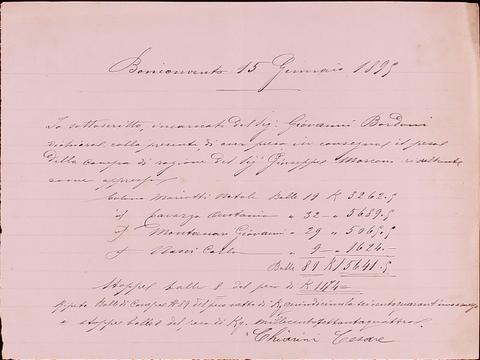 Bonconvento 15 Gennaio 1895
Io sottoscritto, incaricato del Sig. Giovanni Bordoni
dichiaro, colla presente, di aver preso in consegna il peso
della canapa di ragione del Sig. Giuseppe Mosconi
come appresso
Colono Mariotti Natale Balle 19 K 3262.5
" 32 " 5689.5
Montanari Giovanni " 29 " 5065.5
" 9 " 1624.—
Balle 89 K 15641.5
Stoppe balle 8 del peso di K 1174=
Balle di Canapa N 89 del peso netto di Kg quindicimila seicentoquarantuno
e stoppe balle 8 del peso di Kg. millecentosettantaquattro
Chiarini Cesare